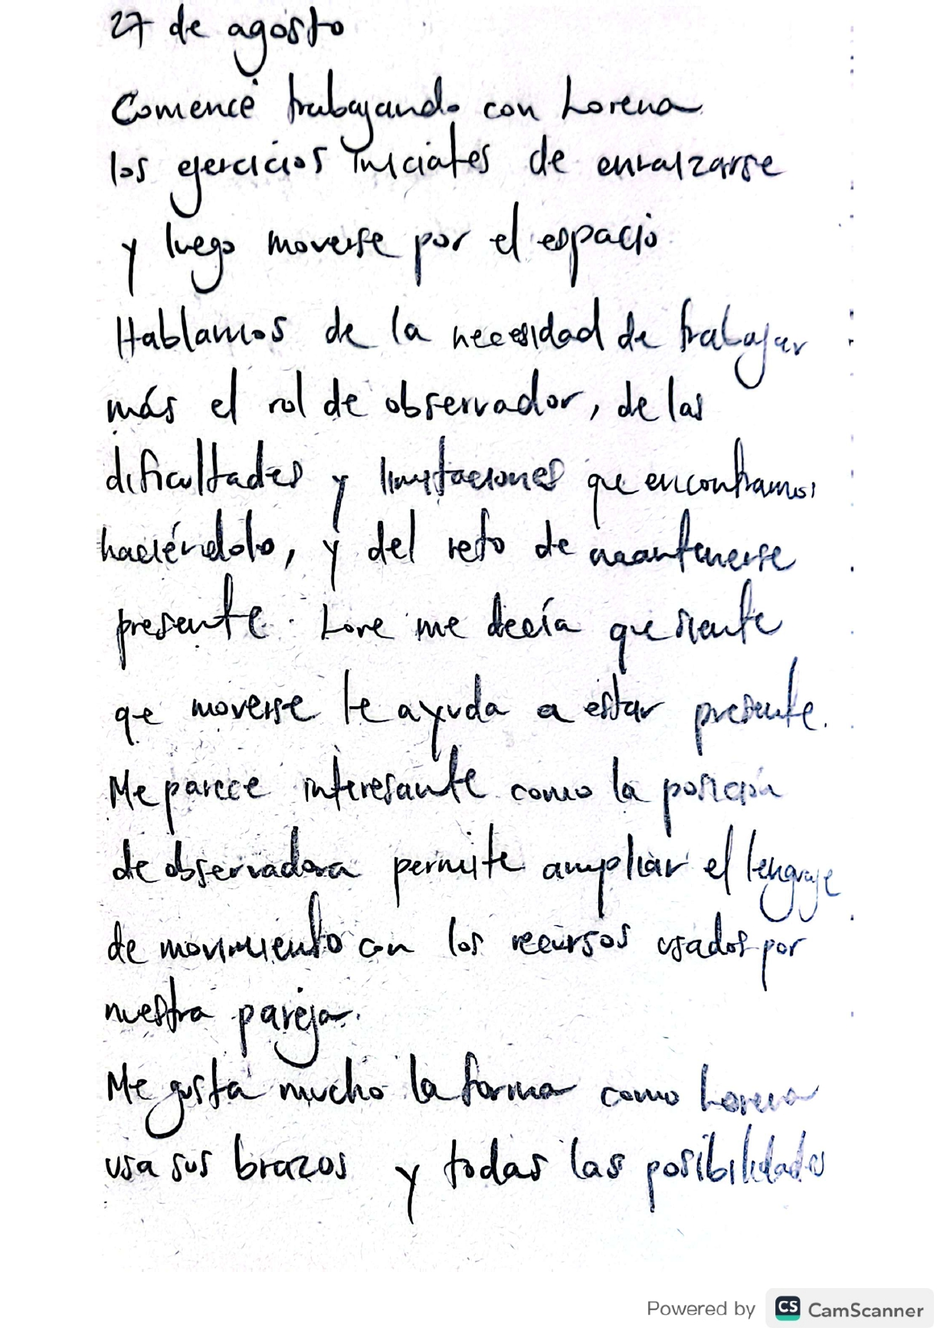 27 de agosto
Comencé trabajando con Lorena
los ejercicios iniciales de enraizarse
y luego moverse por el espacio
Hablamos de la necesidad de trabajar
más el rol de observador, de las
dificultades y limitaciones que encontramos
haciéndolo, y del reto de mantenerse
presente. Lore me decía que siente
que moverse le ayuda a estar presente.
Me parece interesante como la posición
de observadora permite ampliar el lenguaje
de movimiento con los recursos usados por
nuestra pareja.
Me gusta mucho la forma como Lorena
usa sus brazos y todas las posibilidades
Powered by CS CamScanner